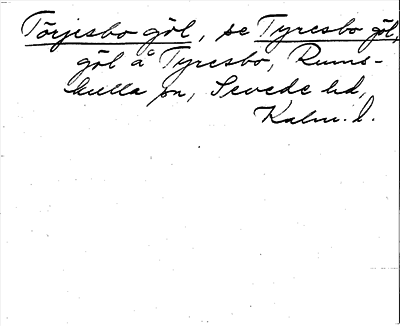 Törjesbo göl, se Tyresbo göl,
göl å Tyresbo, Rums-
kulla sn, Sevede hd,
Kalm. l.